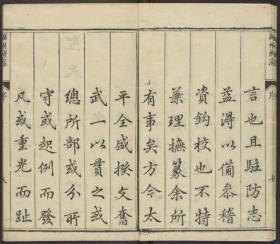 言也且駐防志
益得以備參稽
資鈎校也不特
兼理撫篆余所
有事矣方今太
平全盛揆文奮
武一以貫之或
總所部或分所
守或起例而發
凡或重光而趾
序
八